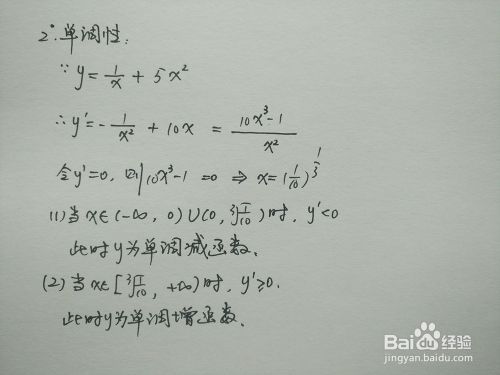 2°.单调性:
∵ y = 1/x + 5x²
∴ y' = -1/x² + 10x = (10x³-1)/x²
令y'=0, 则10x³-1=0 ⇒ x=(1/10)^(1/3)
(1)当x∈(-∞, 0)∪(0, ³√(1/10))时, y'<0
此时y为单调减函数.
(2)当x∈[³√(1/10), +∞)时, y'≥0.
此时y为单调增函数.
Baidu经验
jingyan.baidu.com